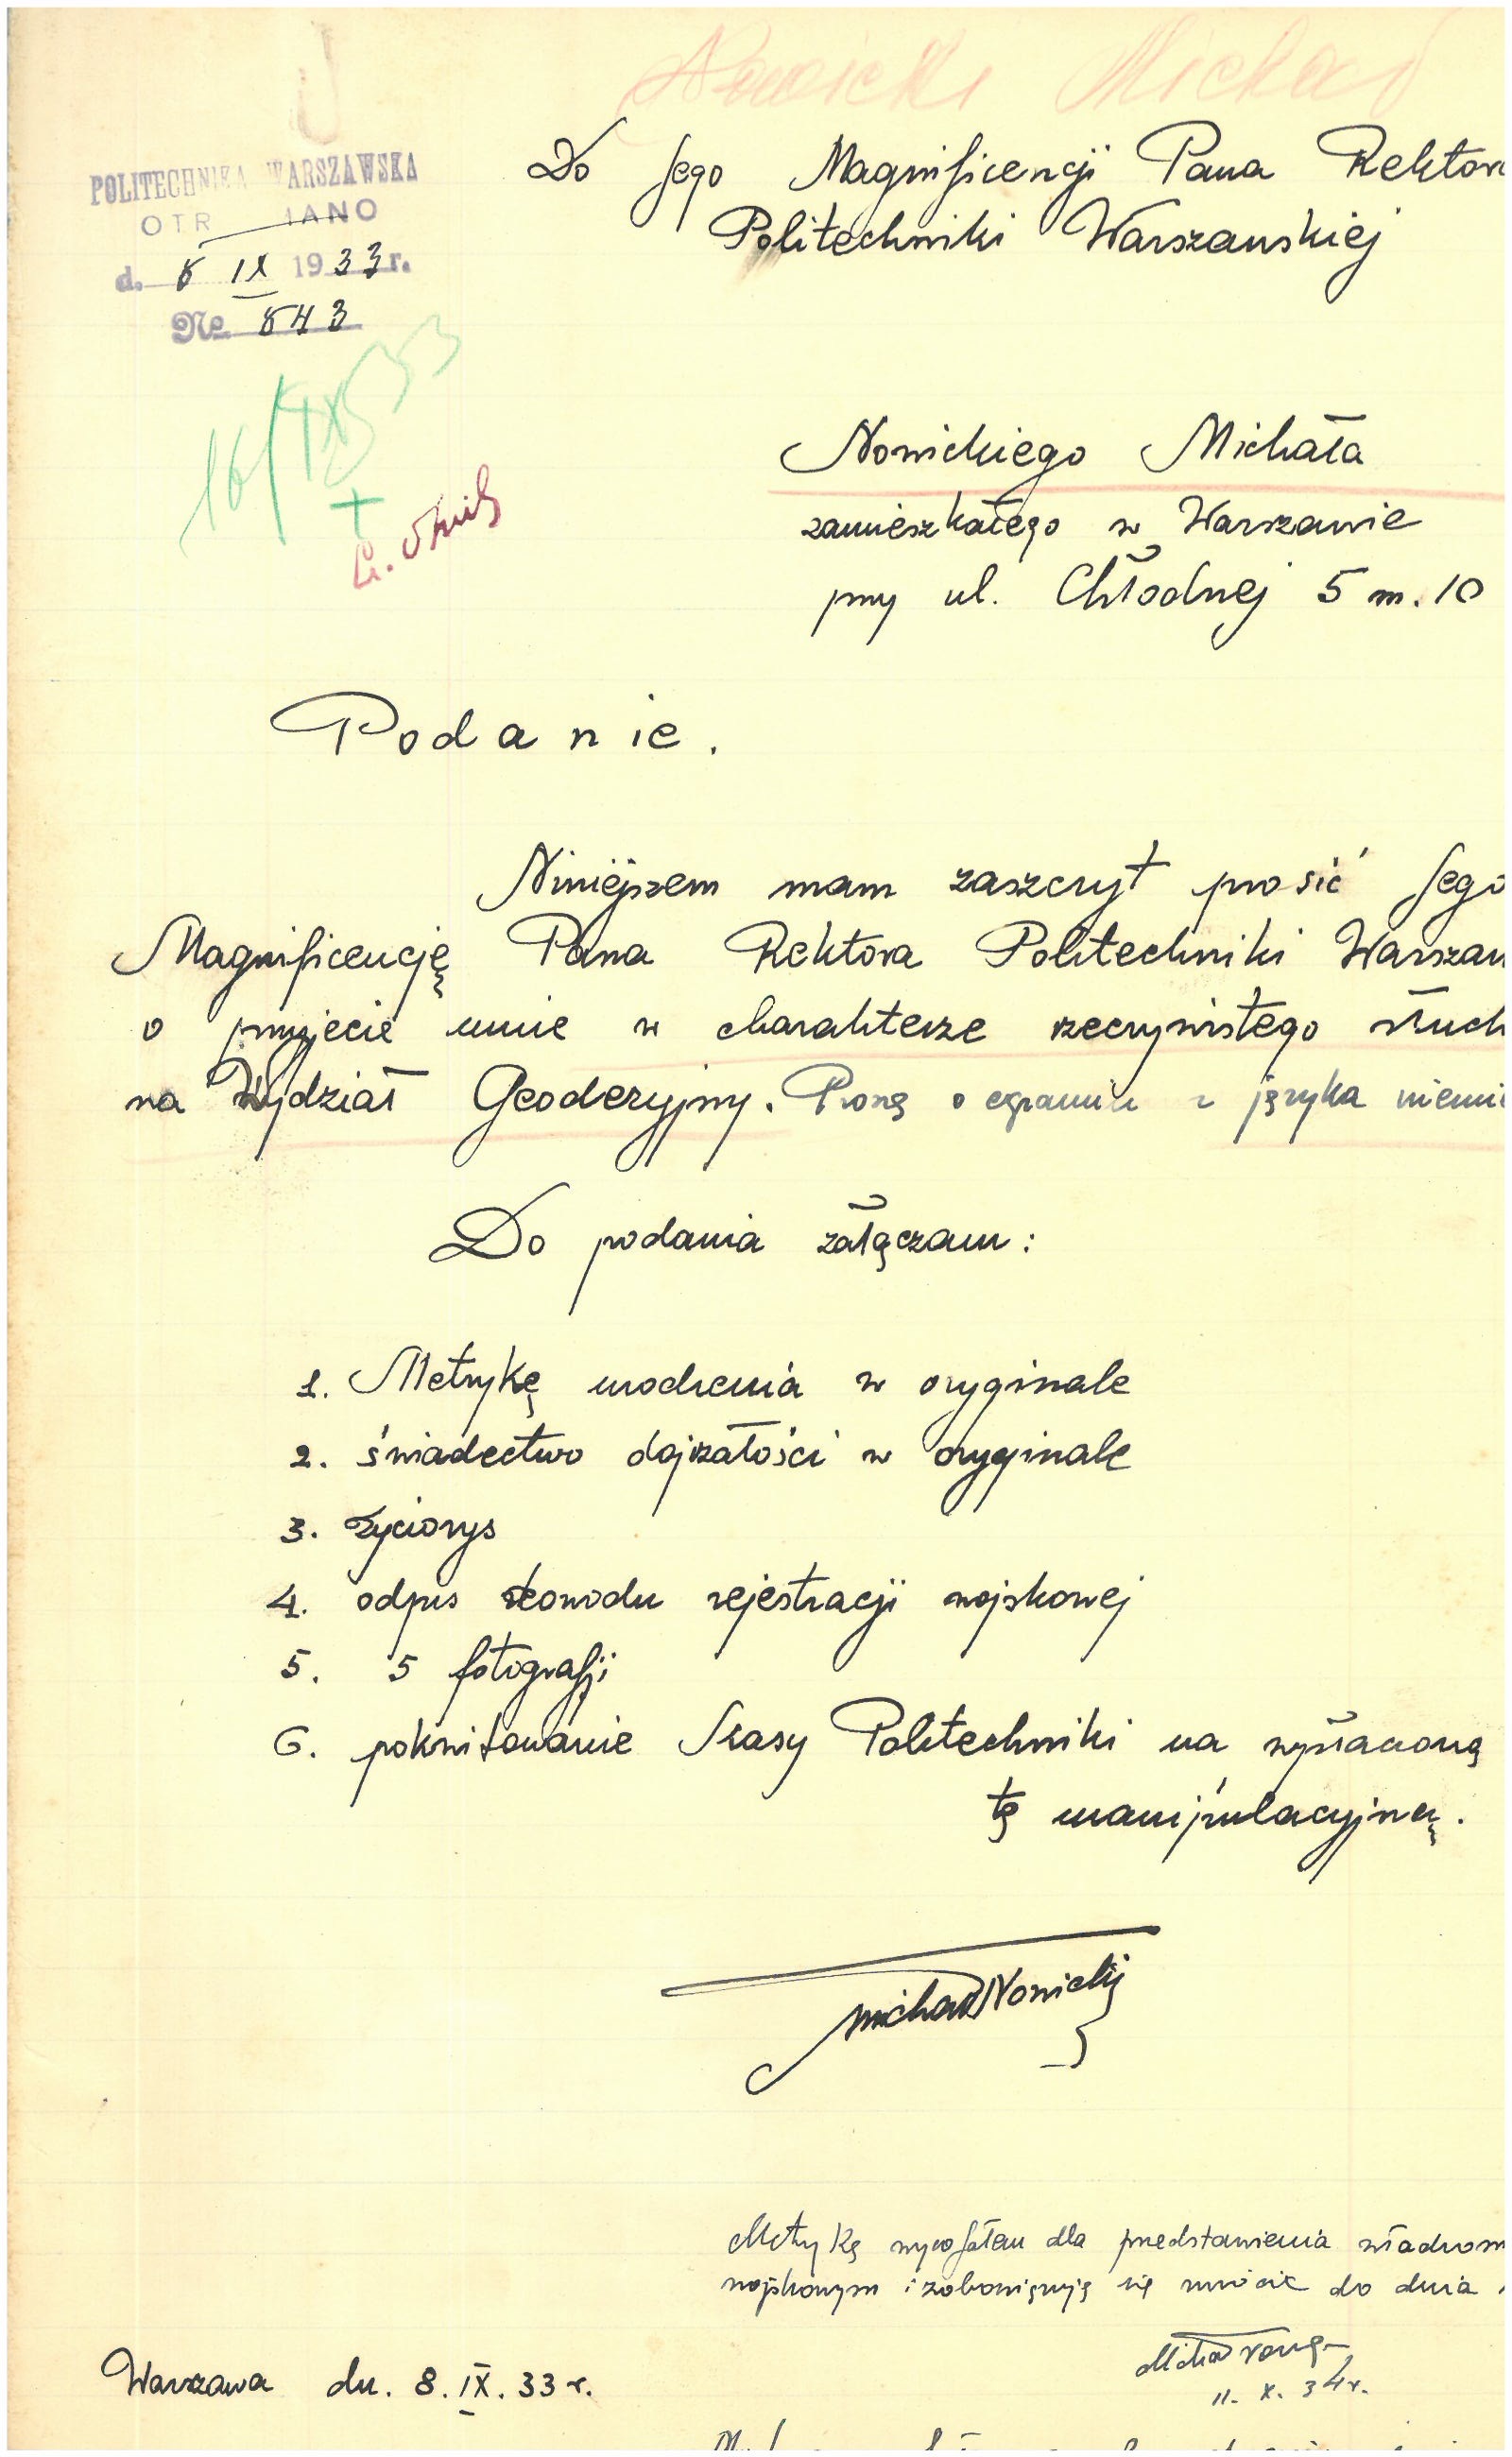 Nowicki Michał
POLITECHNIKA WARSZAWSKA
OTR IANO
d. 8 IX 1933 r.
№ 843
16/IX 33
Do Jego Magnificencji Pana Rektora
Politechniki Warszawskiej
Nowickiego Michała
zamieszkałego w Warszawie
przy ul. Chłodnej 5 m. 10
Podanie.
Niniejszem mam zaszczyt prosić Jego
Magnificencję Pana Rektora Politechniki Warszaw
o przyjęcie mnie w charakterze rzeczywistego słuch
na Wydział Geodezyjny. Proszę o egzamin z języka niemi
Do podania załączam:
1. Metrykę urodzenia w oryginale
2. świadectwo dojrzałości w oryginale
3. życiorys
4. odpis dowodu rejestracji wojskowej
5. 5 fotografji
6. pokwitowanie Kasy Politechniki na wpłaconą
tę manipulacyjną.
Michał Nowicki
Metrykę wycofałem dla przedstawienia władzom
wojskowym i zobowiązuję się zwrócić do dnia
11. X. 34 r.
Warszawa dn. 8. IX. 33 r.